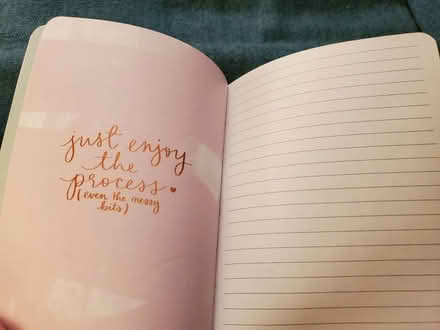 just enjoy
the
process.
(even the messy
bits)